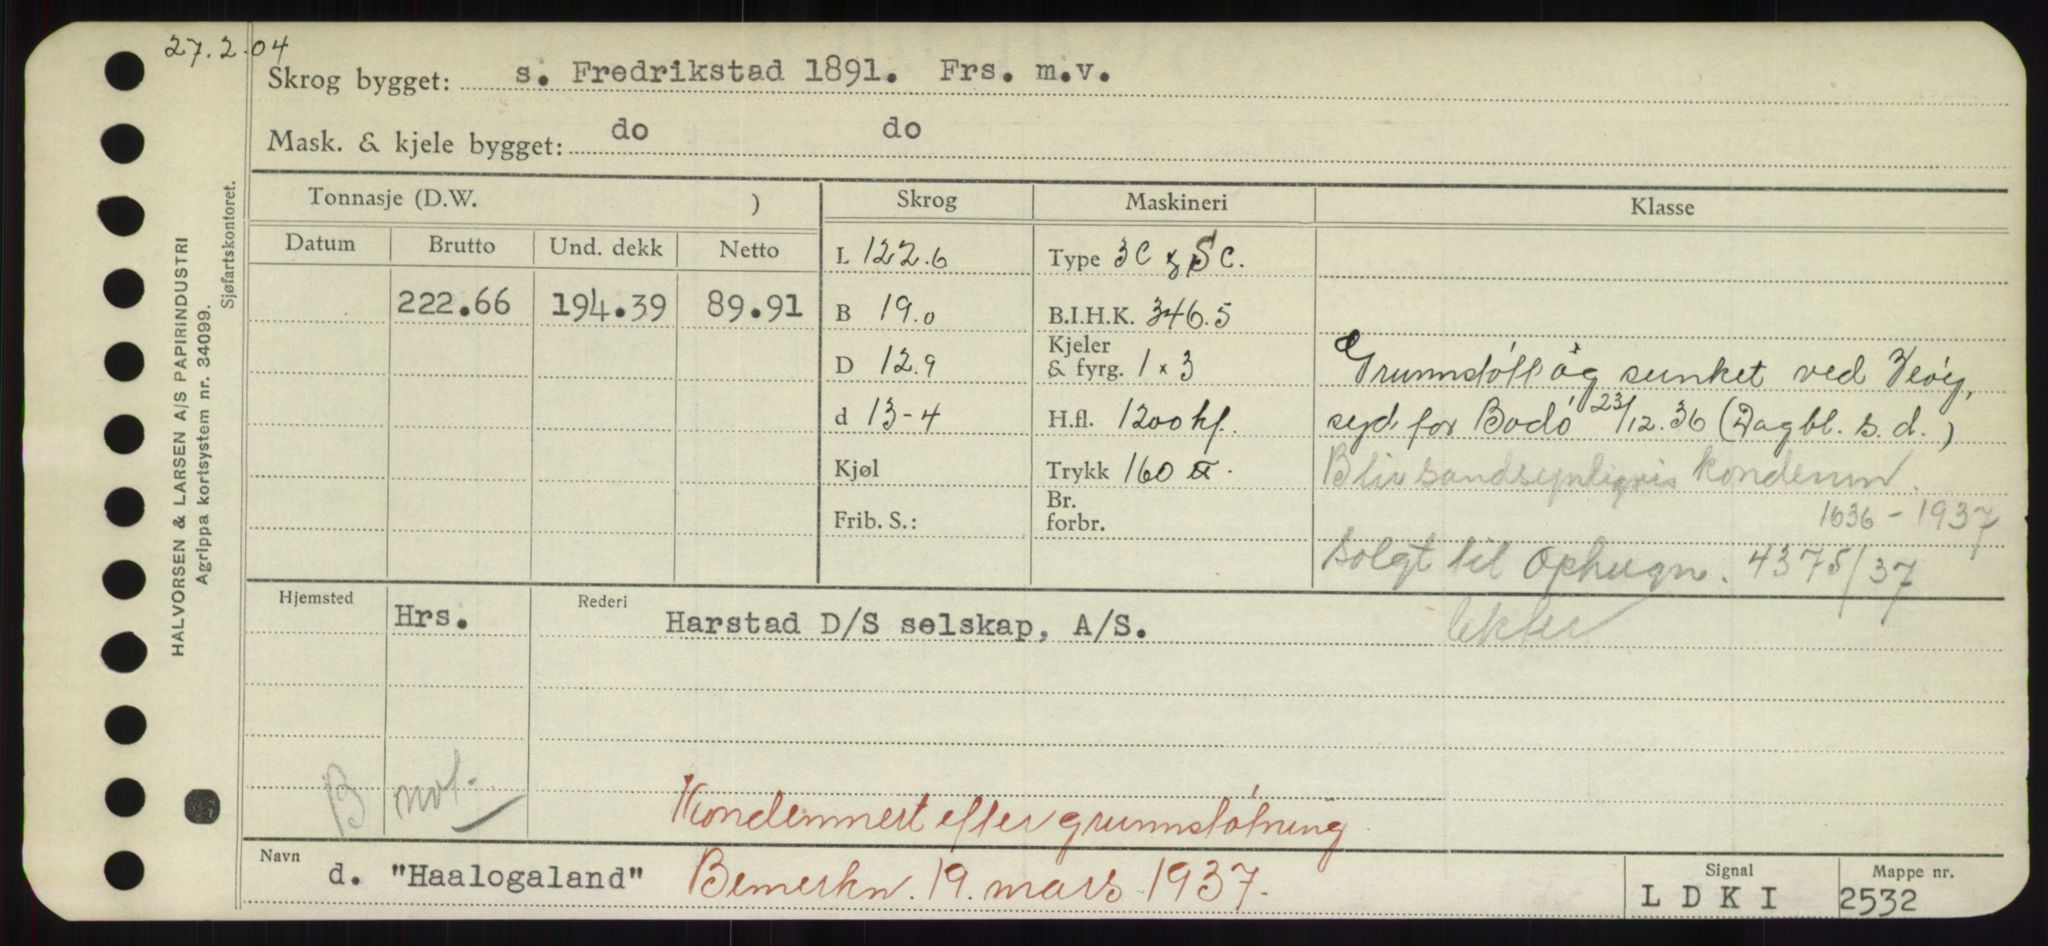 27.2.04
Skrog bygget: s. Fredrikstad 1891. Frs. m.v.
Mask. & kjele bygget: do do
Tonnasje (D.W. ) Skrog Maskineri Klasse
Datum Brutto Und. dekk Netto
L 122.6 Type 3C SC.
222.66 194.39 89.91
B 19.0 B.I.H.K. 346.5
D 12.9 Kjeler & fyrg. 1 x 3
Grunnstött og sunket ved
d 13-4 H.fl. 1200 kf.
syd for Bodö 23/12.36 (Dagbl. s.d.)
Kjøl Trykk 160
Bliv sandsynligvis kondemn.
Frib. S.: Br. forbr.
1636-1937
Solgt til Ophugn. 4375/37
Hjemsted Hrs. Rederi Harstad D/S selskap, A/S.
B not.
Kondemnert efter grunnstötning
Navn d. "Haalogaland" Bemerkn. 19. mars 1937.
Signal L D K I
Mappe nr. 2532
HALVORSEN & LARSEN A/S PAPIRINDUSTRI
Agrippa kortsystem nr. 34099.
Sjøfartskontoret.